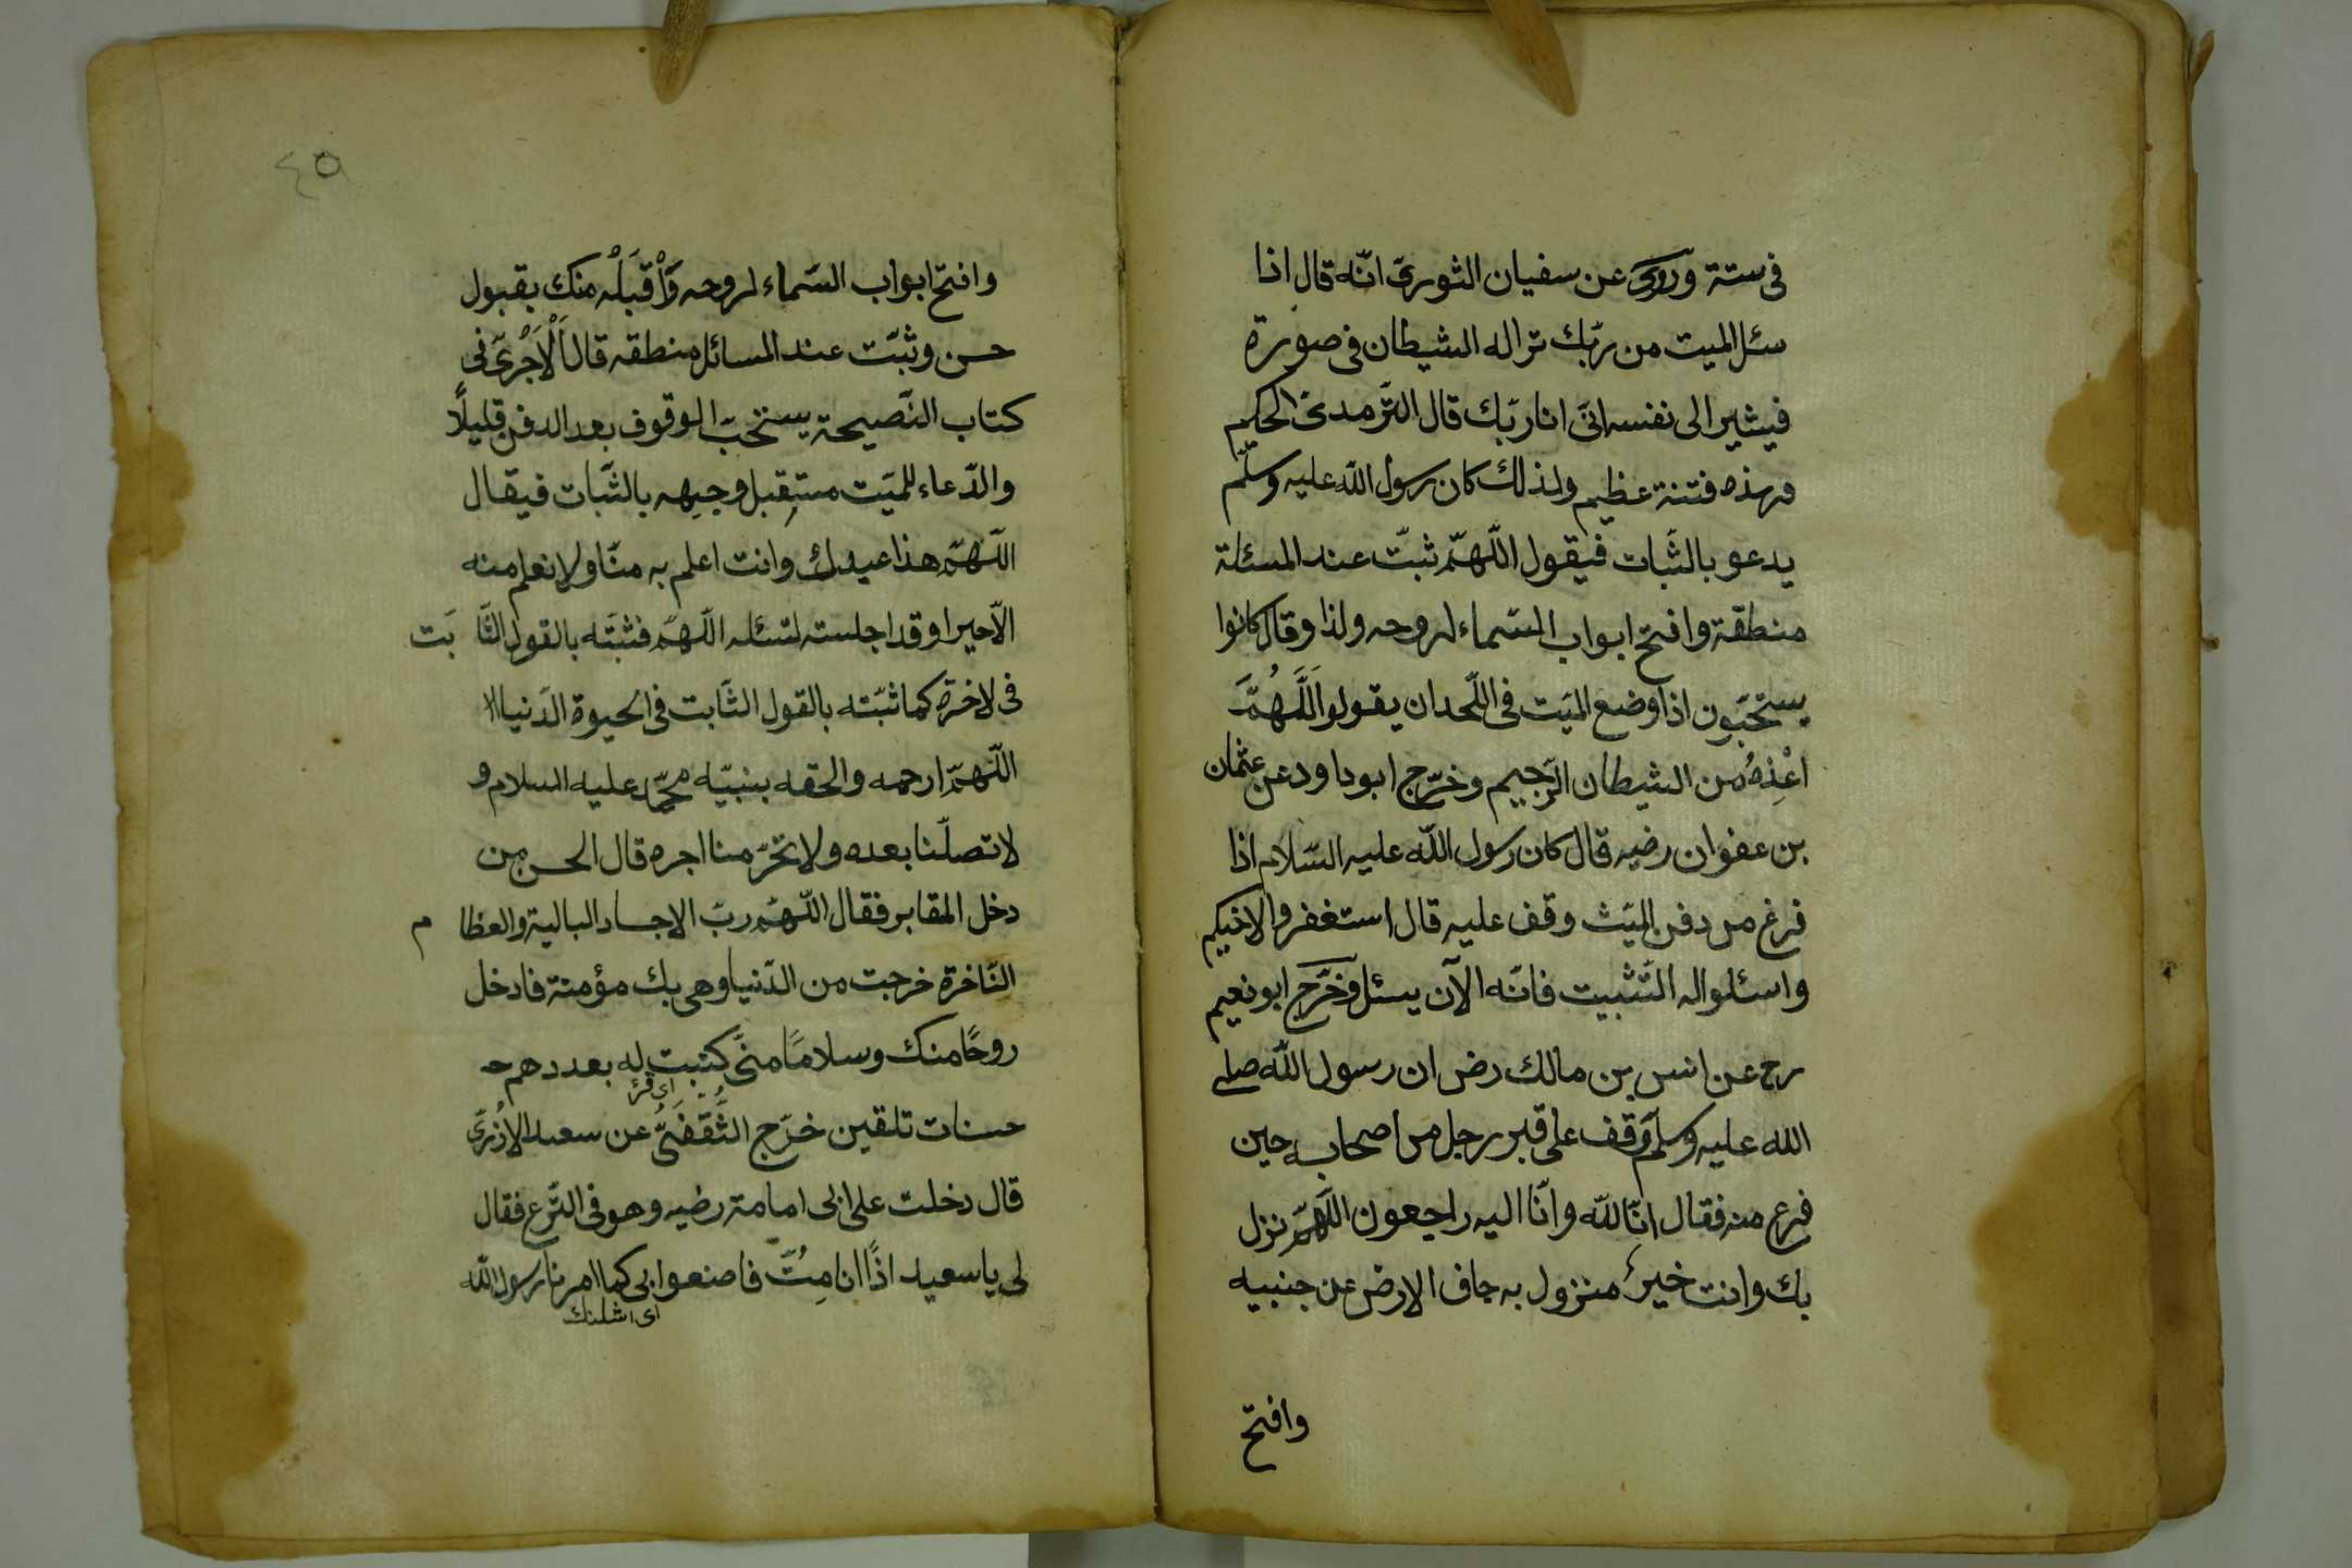 فى ستة وروى عن سفيان الثورىّ انّه قال اذا
سئل الميت من ربّك ترا له الشيطان فى صورة
فيشير الى نفسه انّى انا ربّك قال التّرمدىّ الحكيم
فهذه فتنة عظيم ولذلك كان رسول اللّه عليه وسلّم
يدعو بالثّبات فيقول اللّهمّ ثبّت عند المسئلة
منطقة وافتح ابواب السّماء لروحه ولذا وقال كانوا
يستحبّون اذا وضع الميّت فى اللّحد ان يقولوا اَللَّهُمَّ
اعْذِهُ من الشيطان الرّجيم وخرّج ابو داود عن عثمان
بن عفوان رضيه قال كان رسول اللّه عليه السّلام اذا
فرغ من دفن الميّث وقف عليه قال استغفروا لاخيكم
واسئلوا له التّثبيت فانّه الآن يسئل وخَرَّج ابو نعيم
رح عن انس بن مالك رض ان رسول اللّه صلى
الله عليه وسلم وَقف على قبر رجل من اصحابه حين
فرع منه فقال انّا للّه وانّا اليه راجعون اللّهمّ نزل
بك وانت خير منزول به جاف الارض عن جنبيه
وافتح
٤٥
وافتح ابواب السّماء لروحه وَاْقْبَلْه منك بقبول
حسن وثبّت عند المسائل منطقه قال اَلْاَجْرِىّ فى
كتاب النّصيحة يستحبّ الوقوف بعد الدفن قليلًا
والدّعاء للميّت مستقبل وجيهه بالثّبات فيقال
اللّهمّ هذا عبدك وانت اعلم به منّا ولا نعلم منه
الّا خيرا وقد اجلسته لتسئله اللّهمّ فثبّته بالقول الثّا بَت
فى لاخرة كما ثبّته بالقول الثّابت فى الحيوة الدّنيا
اللّهمّ ارحمه والحقه بنبيّه محمّد عليه السلام و
لا تصلّنا بعده ولا تحرّمنا اجره قال الحسن من
دخل المقابر فقال اللّهمّ ربّ الاجساد البالية والعظا م
النّاخرة خرجت من الدّنيا وهى بك مؤمنة فادخل
روحًا منك وسلامًا منّى كتبت له بعددهم
اى قرئ
حسنات تلقين خرّج الثَّقَفَىُّ عن سعيد الاَزْدِىّ
قال دخلت على ابى امامة رضيه وهو فى النّزع فقال
لى يا سعيد اذًا انا مِتُّ فاصنعوا بى كما امرنا رسول اللّه
اى اشلنك